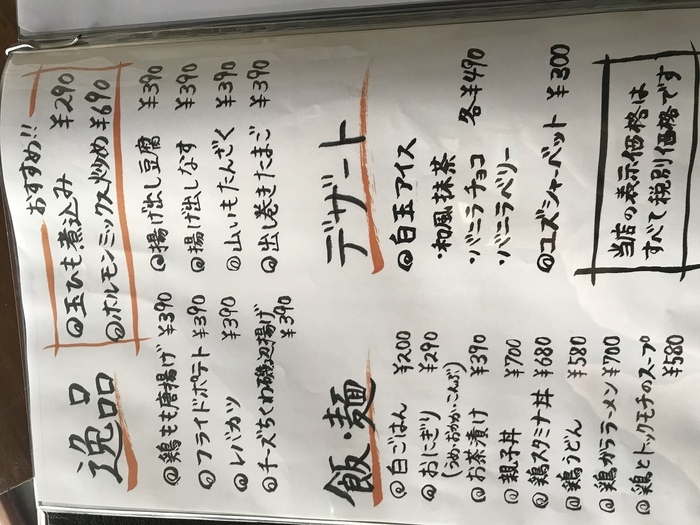 逸品
おすすめ!!
◎玉ひも煮込み ¥290
◎ホルモンミックス炒め ¥690
◎鶏もも唐揚げ ¥390
◎フライドポテト ¥390
◎レバカツ ¥390
◎チーズちくわ磯辺揚げ ¥390
◎揚げ出し豆腐 ¥390
◎揚げ出しなす ¥390
◎山いもたんざく ¥390
◎出し巻きたまご ¥390
飯・麺
◎白ごはん ¥200
◎おにぎり ¥290
(うめ・おかか・こんぶ)
◎お茶漬け ¥390
◎親子丼 ¥700
◎鶏スタミナ丼 ¥680
◎鶏うどん ¥580
◎鶏ガララーメン ¥700
◎鶏とトックモチのスープ ¥580
デザート
◎白玉アイス
・和風抹茶
・バニラチョコ 各¥490
・バニラベリー
◎ユズシャーベット ¥300
当店の表示価格は
すべて税別価格です